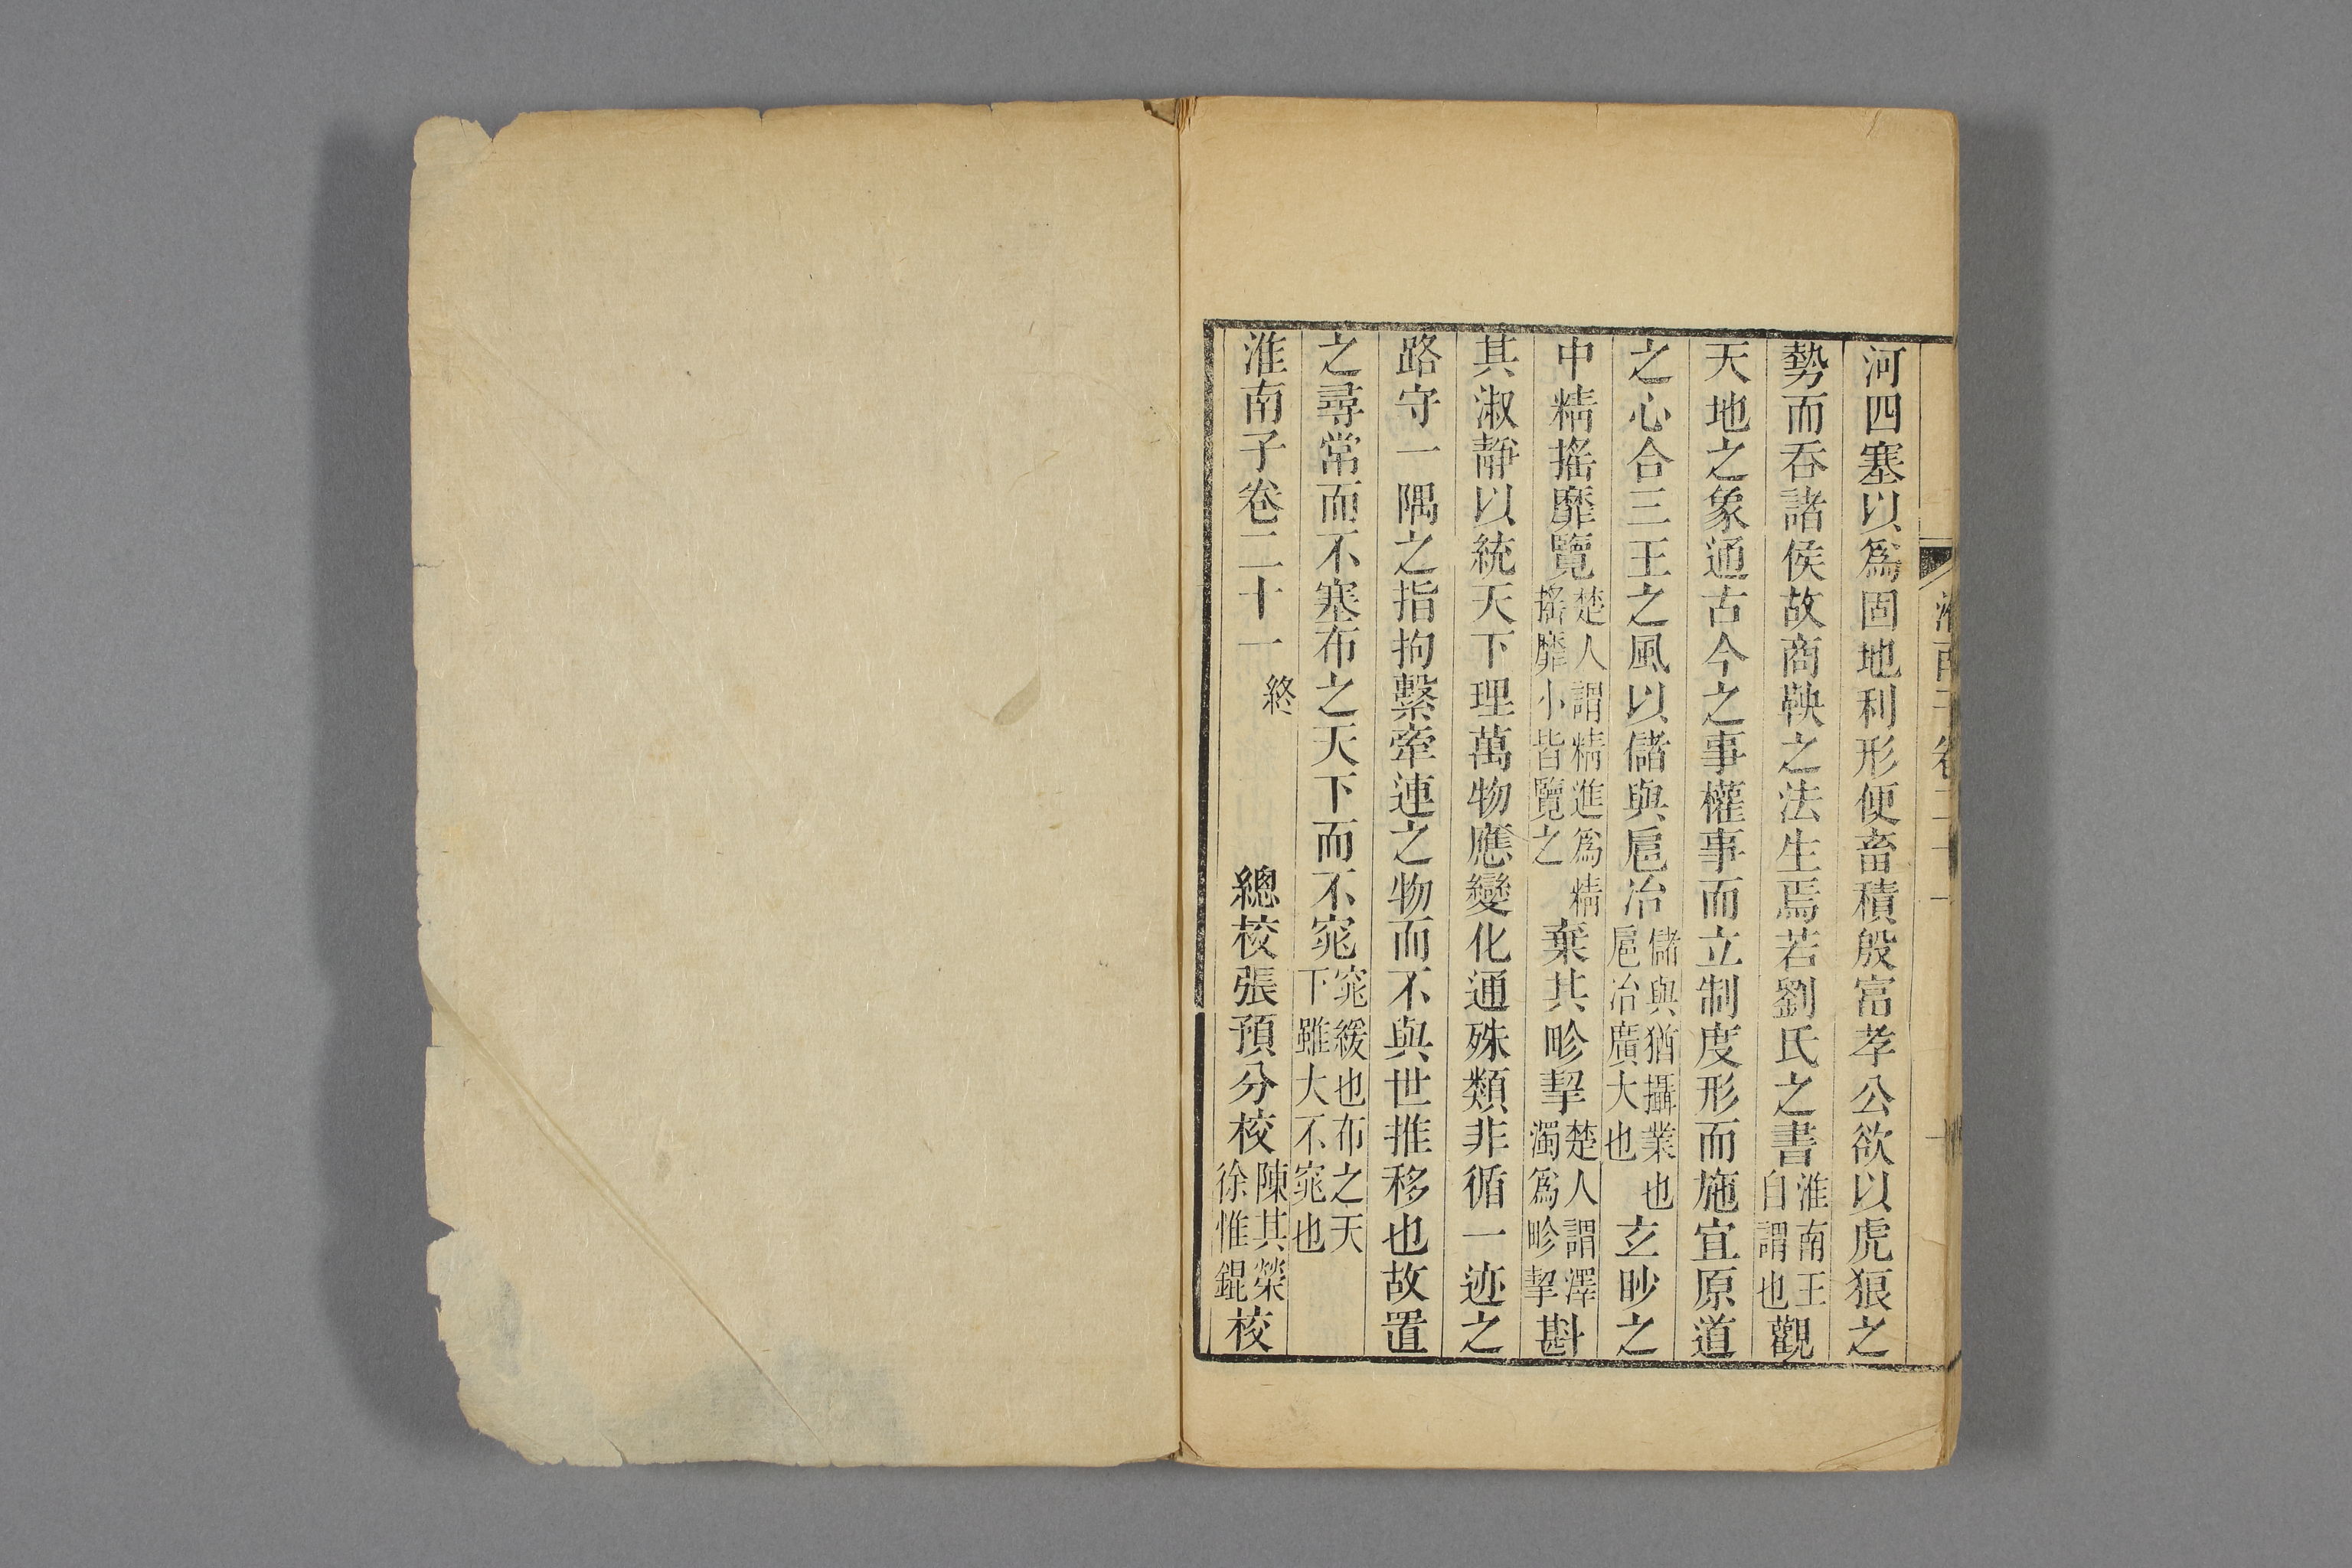 河四塞以爲固地利形便畜積殷富孝公欲以虎狼之
勢而吞諸侯故商鞅之法生焉若劉氏之書淮南王自謂也觀
天地之象通古今之事權事而立制度形而施宜原道
之心合三王之風以儲與扈冶儲與猶攝業也扈冶廣大也玄眇之
中精搖靡覽楚人謂精進爲精搖靡小皆覽之棄其畛挈楚人謂澤濁爲畛挈斟
其淑靜以統天下理萬物應變化通殊類非循一迹之
路守一隅之指拘繫牽連之物而不與世推移也故置
之尋常而不塞布之天下而不窕窕緩也布之天下雖大不窕也
淮南子卷二十一終 總校張預分校陳其榮徐惟錕校